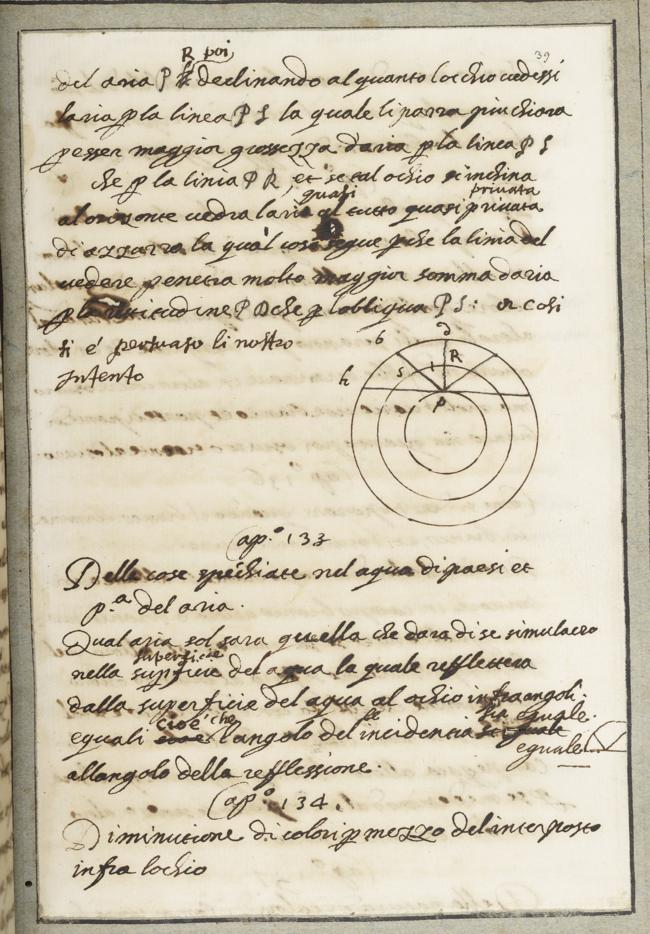 39
R poi
del aria P R declinando alquanto lochio vedessi
laria p la linea P S la quale li parra piu chiara
p esser maggior grossezza daria p la linea P S
che p la linia P R, et se tal ochio si inchina
quasi privata
al orizonte vedra laria al tutto quasi privata
di azzurro la qual cosa segue p che la linia del
vedere penetra molto maggior somma daria
p la rettitudine P D che p lobliqua P S: et cosi
si é persuaso li nostro
Intento
b d
h S R
P
Cap.º 133
Delle cose spechiate nel aqua di paesi et
p.ª del aria.
Qual aria sol sara quella che dara di se simulacro
superficie
nella supficie del aqua la quale refflettera
dalla superficie del aqua al ochio infra angoli
cioé che le sia eguale.
equali langolo del incidentia
eguale
allangolo della refflessione.
Cap.º 134.
Diminutione di colori p mezzo del interposto
infra lochio